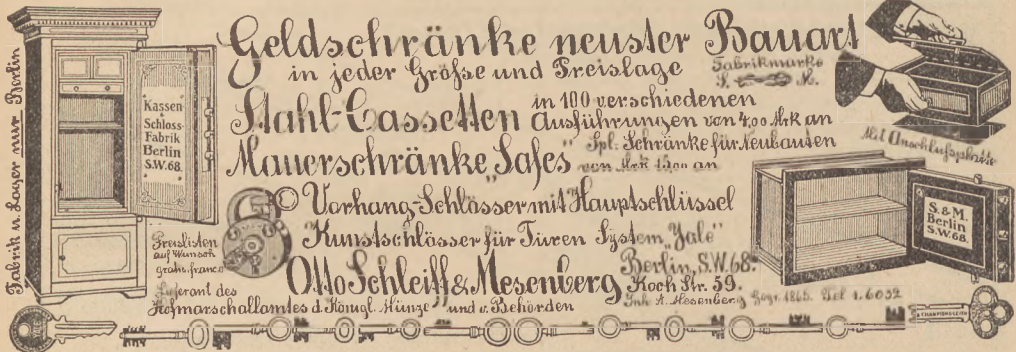 Fabrik u. Lager nur Berlin
Kassen
Schloss-
Fabrik
Berlin
S.W.68.
Geldschränke neuster Bauart
in jeder Größe und Preislage
Fabrikmarke
Stahl-Cassetten in 100 verschiedenen
Ausführungen von 4,00 Mrk an
Mauerschränke „Safes” Spl. Schränke für Neubauten
von Mrk an
Mit Anschlußplatte
Vorhang-Schlösser mit Hauptschlüssel
Kunstschlösser für Türen System „Yale”
Preislisten
auf Wunsch
gratis, franco
Otto Schleiff & Mesenberg Berlin, S.W.68.
Koch Str. 59.
Inh. A. Mesenberg Gegr. 1865. Tel 1.6032
Lieferant des
Hofmarschallamtes d. Königl. Münze” und v. Behörden
S. & M.
Berlin
S.W.68.